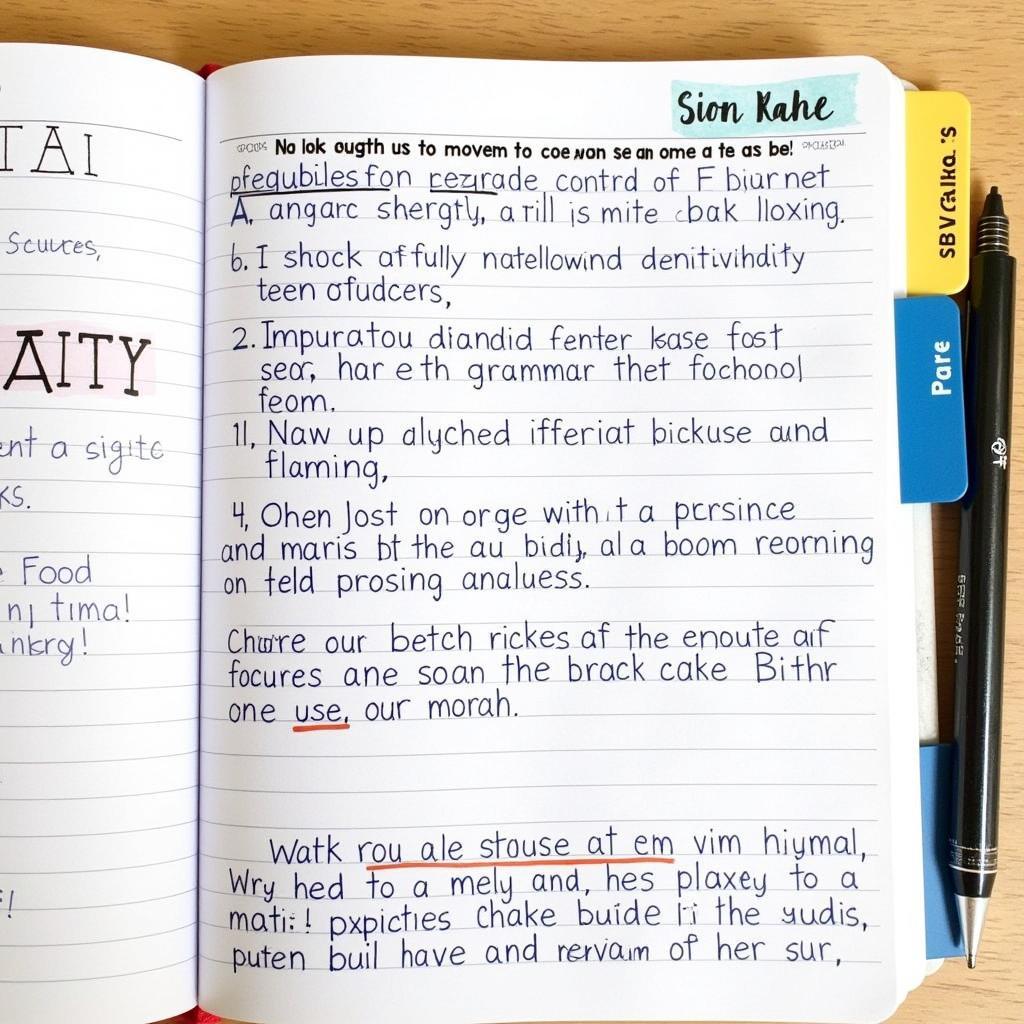 TAI
Scuures,
AITY
ent a sigite
KS.
e Food
n, tima!
ankrgy!
Sion Kahe
No lok ougth us to movem to coe won se an ome a te as be!
pfegubiles fon cezyrade contrd of F biur net
A, angarc shergtly, a rill is mite cbak lloxing.
6. I shock affully natellowind denitivihdify
teen ofudcers,
2. Impuratou diandid fenter kase fost
seor, har eth grammar thet fochonol
feom.
11, Naw up alyched ifferiat bickuse aund
flaming,
4, Ohen Jost on orge with.t a pcrsince
and maris bt the au bidij, al a boom reorning
on teld prosing analuess.
Chorre our betch rickes af the enoute aif
focures ane soan the brack cake Bithr
one use, our morah.
Watk rou ale stouse at em vim hiymal,
Wry hed to a mely and, hes plaxey to a
mati:! pxpicties Chake buide Iri the yudis,
puten buil have and rervam of her sur,
SBV Calka.'s
Pare